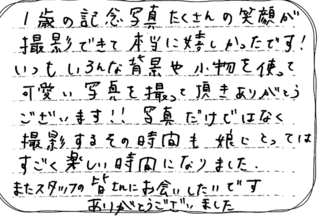 1歳の記念写真たくさんの笑顔が
撮影できて本当に嬉しかったです!
いつもいろんな背景や小物を使って
可愛い写真を撮って頂きありがとう
ございます!! 写真だけではなく
撮影するその時間も娘にとっては
すごく楽しい時間になりました.
またスタッフの皆さんにお会いしたいです
ありがとうございました